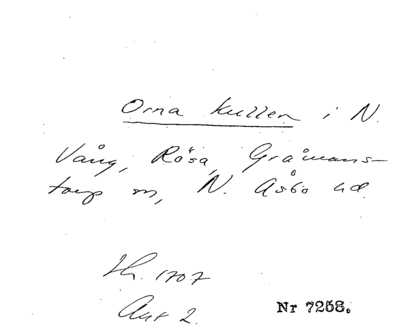 Orna kullen i N.
Vång, Rösa, Gråmans-
torp sn, N. Åsbo hd.
Lh. 1707
Akt 2.
Nr 7258.